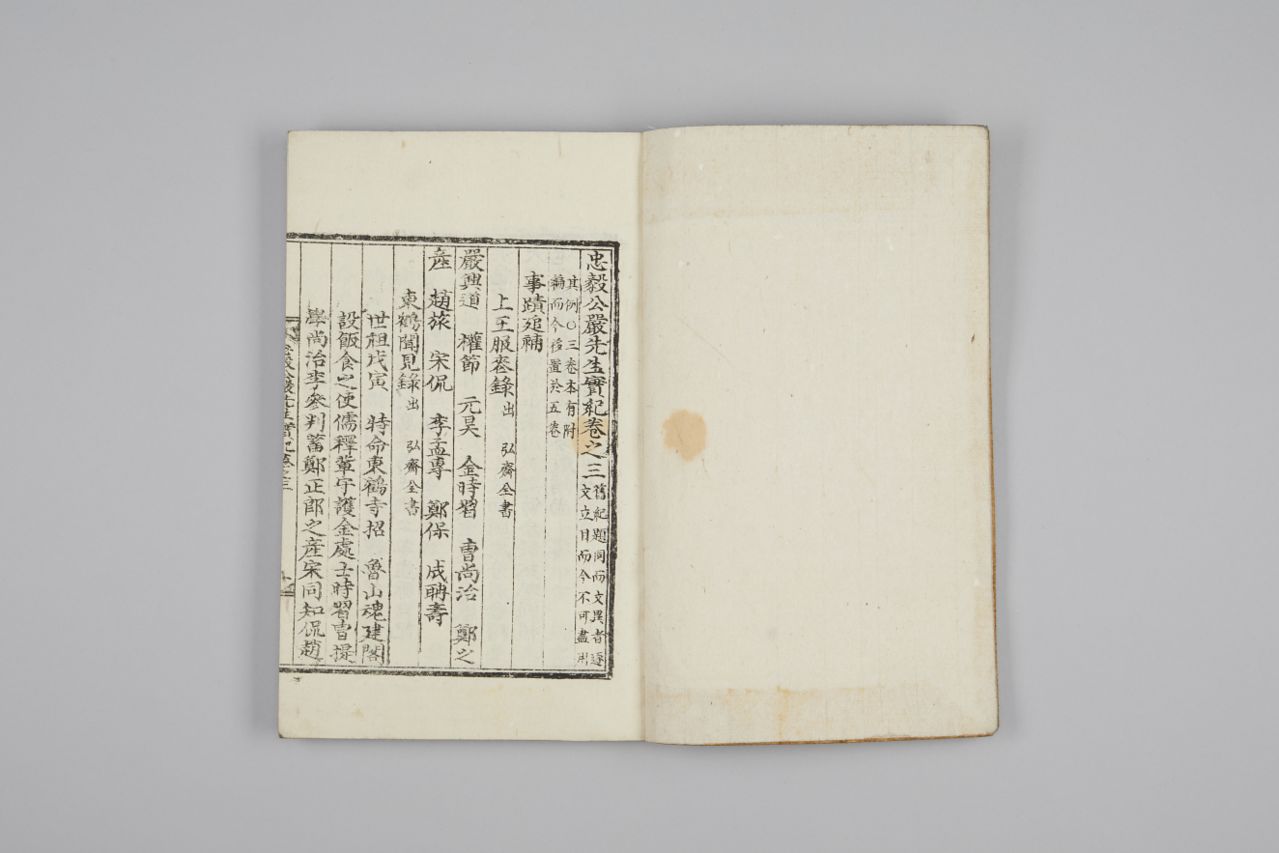 忠毅公嚴先生實紀卷之三 舊紀題同而文異者逐
文立目而今不可盡用
其例○三卷本有附
編而今移置於五卷
事蹟追補
上王服喪錄 出 弘齋全書
嚴興道 權節 元昊 金時習 曹尚治 鄭之
産 趙旅 宋侃 李孟專 鄭保 成聃壽
東鶴聞見錄 出 弘齋全書
世祖戊寅 特命東鶴寺招 魯山魂建閣
設飯食之使儒釋輩守護金處士時習曹提
學尚治李參判蓄鄭正郎之産宋同知侃趙